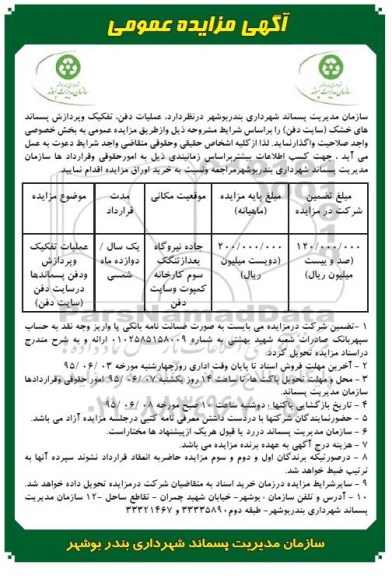 آگهی مزایده عمومی
سازمان مدیریت پسماند شهرداری بندربوشهر درنظردارد، عملیات دفن، تفکیک وپردازش پسماند
های خشک (سایت دفن) را براساس شرایط مشروحه ذیل وازطریق مزایده عمومی به بخش خصوصی
واجد صلاحیت واگذارنماید. لذا ازکلیه اشخاص حقیقی وحقوقی متقاضی واجد شرایط دعوت به عمل
می آید، جهت کسب اطلاعات بیشتربراساس زمانبندی ذیل به امورحقوقی وقرارداد ها سازمان
مدیریت پسماند شهرداری بندربوشهرمراجعه ونسبت به خرید اوراق مزایده اقدام نمایید.
موضوع مزایده
مدت قرارداد
موقعیت مکانی
مبلغ پایه مزایده (ماهیانه)
مبلغ تضمین شرکت در مزایده
عملیات تفکیک وپردازش ودفن پسماندها درسایت دفن (سایت دفن)
یک سال / دوازده ماه شمسی
جاده نیروگاه بعدازتنگک سوم کارخانه کمپوت وسایت دفن
۲۰۰/۰۰۰/۰۰۰ (دویست میلیون ریال)
۱۲۰/۰۰۰/۰۰۰ (صد و بیست میلیون ریال)
۱ -تضمین شرکت درمزایده می بایست به صورت ضمانت نامه بانکی یا واریز وجه نقد به حساب
سپهربانک صادرات شعبه شهید بهشتی به شماره ۰۱۰۲۵۸۵۱۵۸۰۰۹ ارائه و به شرح مندرج
دراسناد مزایده تحویل گردد.
۲ - آخرین مهلت فروش اسناد تا پایان وقت اداری روزچهارشنبه مورخه ۹۵/۰۶/۰۳
۳ - محل و مهلت تحویل پاکت ها، تا ساعت ۱۴ روز یکشنبه ۹۵/۰۶/۰۷ امور حقوقی وقراردادها
سازمان مدیریت پسماند.
۴ - تاریخ بازگشایی پاکتها ، دوشنبه ساعت ۱۰ صبح مورخه ۹۵/۰۶/۰۸
۵ - حضورنمایندگان شرکتها با دردست داشتن معرفی نامه کتبی درجلسه مزایده آزاد می باشد.
۶ - سازمان مدیریت پسماند دررد یا قبول هریک ازپیشنهاد ها مختاراست.
۷ - هزینه درج آگهی به عهده برنده مزایده می باشد.
۸ - درصورتیکه برندگان اول و دوم و سوم مزایده حاضربه انعقاد قرارداد نشوند سپرده آنها به
ترتیب ضبط خواهد شد.
۹ - سایرشرایط مزایده درزمان خرید اسناد به متقاضیان شرکت درمزایده تحویل داده خواهد شد.
۱۰ - آدرس و تلفن سازمان ، بوشهر - خیابان شهید چمران - تقاطع ساحل -۱۲ سازمان مدیریت
پسماند شهرداری بندربوشهر- طبقه دوم ۳۳۳۳۵۸۹۰ و ۳۳۳۲۱۴۶۷
سازمان مدیریت پسماند شهرداری بندر بوشهر
ParsNamadData